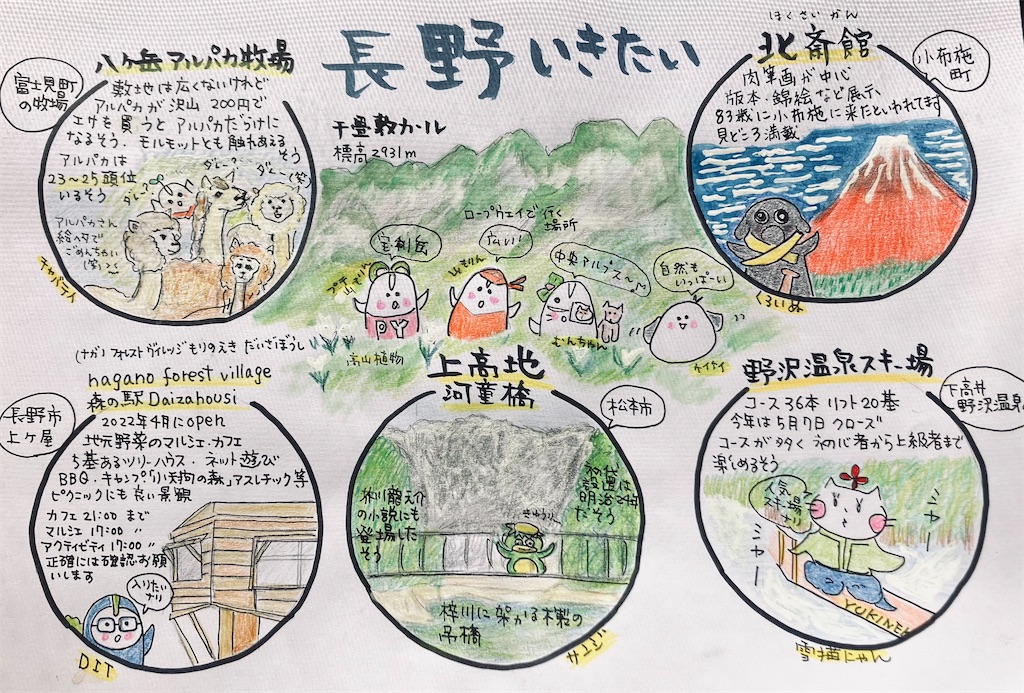 長野いきたい
八ヶ岳アルパカ牧場
富士見町
の牧場
敷地は広くないけれど
アルパカが沢山 200円で
エサを買うとアルパカだらけに
なるそう、モルモットとも触れあえる
そう
アルパカは
23〜25頭位
いるそう
ダレー?
ダレー?
ダレー(笑)
アルパカさん
ごめんちゃい
(笑)
チャパティ
千畳敷カール
標高2931m
ロープウェイで行く
場所
宝剣岳
広い!
中央アルプス
自然も
いっぱーい
山もりん
PY
高山植物
むんちゃん
ケイティ
ほくさいかん
北斎館
小布施
町
肉筆画が中心
版本・錦絵など展示
83歳に小布施に来たといわれてます
見どころ満載
くろいぬ
(ナガ)フォレストヴィレッジもりのえき だいざぼうし
nagano forest village
森の駅Daizahousi
長野市
上ケ屋
2022年4月にopen
地元野菜のマルシェ・カフェ
5基あるツリーハウス・ネット遊び
BBQ・キャンプ「小天狗の森」アスレチック等
ピクニックにも良い景観
カフェ 21:00 まで
マルシェ 17:00 〃
アクティビティ 17:00 〃
正確には確認お願
いします
入りたい
ナリ
DIT
上高地
河童橋
松本市
芥川龍之介
の小説にも
登場した
そう
初代
設置は
明治24年
だそう
きゅうり
梓川に架かる木製の
吊橋
サエジ
野沢温泉スキー場
下高井
野沢温泉
コース36本 リフト20基
今年は5月7日クローズ
コースが多く初心者から上級者まで
楽しめるそう
人気
スキー場
なり
ミャー
ミャー
YUKINEK
雪猫にゃん